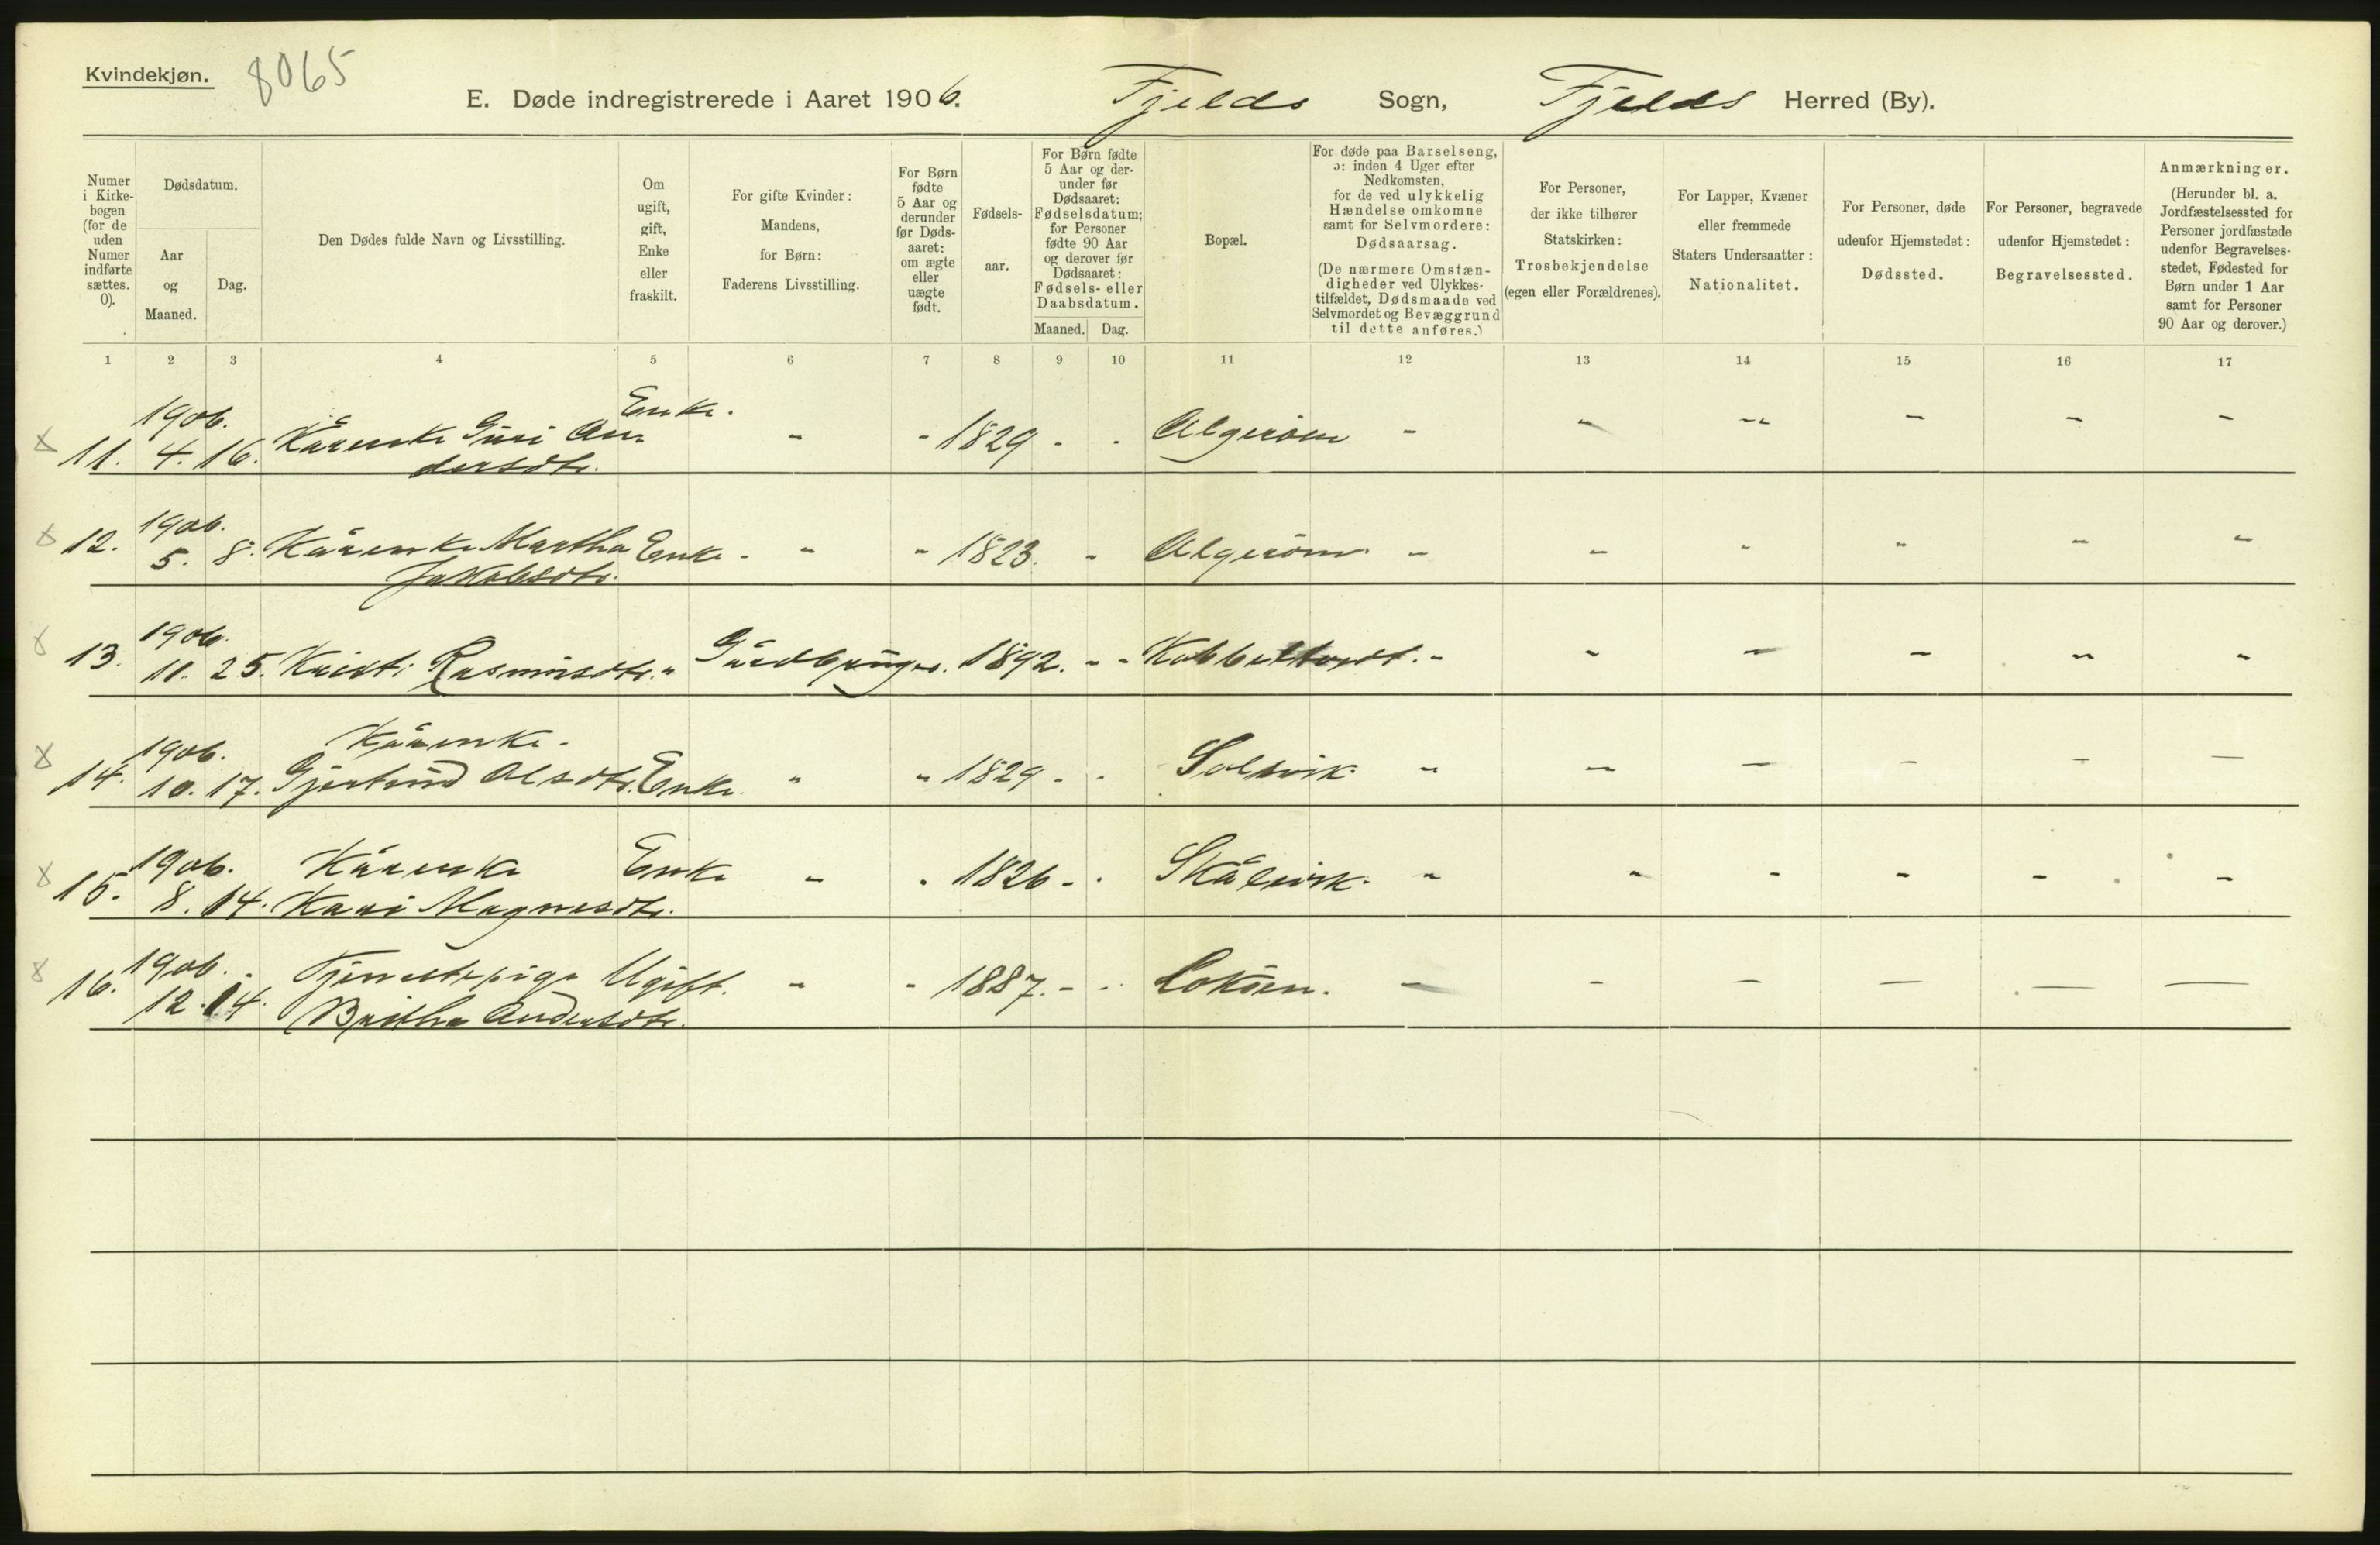 Kvindekjøn. 8065
E. Døde indregistrerede i Aaret 1906. Fjelds Sogn, Fjelds Herred (By).
Numer i Kirkebogen (for de uden Numer indførte sættes. 0).
Dødsdatum.
Aar og Maaned.
Dag.
Den Dødes fulde Navn og Livsstilling.
Om ugift, gift, Enke eller fraskilt.
For gifte Kvinder: Mandens, for Børn: Faderens Livsstilling.
For Børn fødte 5 Aar og derunder før Dødsaaret: om ægte eller uægte født.
Fødselsaar.
For Børn fødte 5 Aar og derunder før Dødsaaret: Fødselsdatum; for Personer fødte 90 Aar og derover før Dødsaaret: Fødsels- eller Daabsdatum.
Maaned. Dag.
Bopæl.
For døde paa Barselseng, ɔ: inden 4 Uger efter Nedkomsten, for de ved ulykkelig Hændelse omkomne samt for Selvmordere: Dødsaarsag.
(De nærmere Omstændigheder ved Ulykkestilfældet, Dødsmaade ved Selvmordet og Bevæggrund til dette anføres.)
For Personer, der ikke tilhører Statskirken: Trosbekjendelse (egen eller Forældrenes).
For Lapper, Kvæner eller fremmede Staters Undersaatter: Nationalitet.
For Personer, døde udenfor Hjemstedet: Dødssted.
For Personer, begravede udenfor Hjemstedet: Begravelsessted.
Anmærkninger.
(Herunder bl. a. Jordfæstelsessted for Personer jordfæstede udenfor Begravelsesstedet, Fødested for Børn under 1 Aar samt for Personer 90 Aar og derover.)
1 2 3 4 5 6 7 8 9 10 11 12 13 14 15 16 17
1906. Enke.
11. 4. 16. Kårenke Guri An- " - 1829 - - Algerøen - - - - - -
dersdtr.
1906.
12. 5. 8. Kårenke Martha Enke - " " 1823. - Algerøen - - - - - -
Jakobsdtr.
1906.
13. 11. 25. Kristi Rasmusdtr. " Gårdbruger. 1892. - - Kobbeltvedt. - - - - - -
1906. Kårenke.
14. 10. 17. Gjertrud Olsdtr. Enke. " " 1829 - - Solsvik - - - - - -
1906. Kårenke Enke " - 1826 - - Skålvik - - - - - -
15. 8. 14. Kari Magnesdtr.
1906. Tjenestepige Ugift. " " 1887. - - Løkøen. - - - - - -
16. 12. 14. Britha Andersdtr.